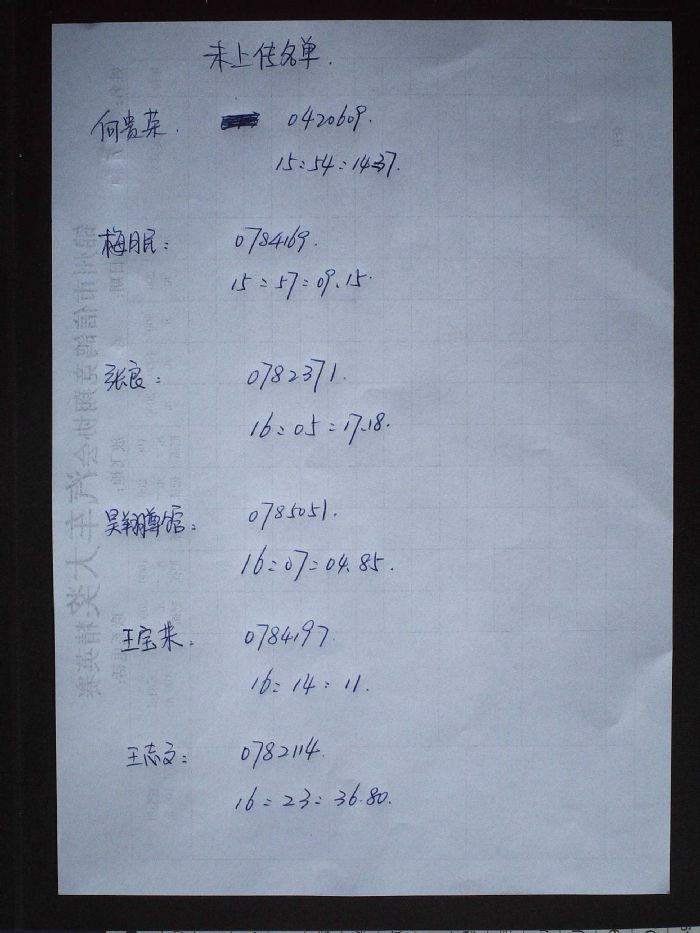 未上传名单.
何贵荣. 0420609.
15:54:14.37.
梅月民: 0784169.
15:57:09.15.
张良: 0782371.
16:05:17.18.
0785051.
16:07:04.85.
王宝荣: 0784197.
16:14:11.
王志文: 0782114.
16:23:36.80.